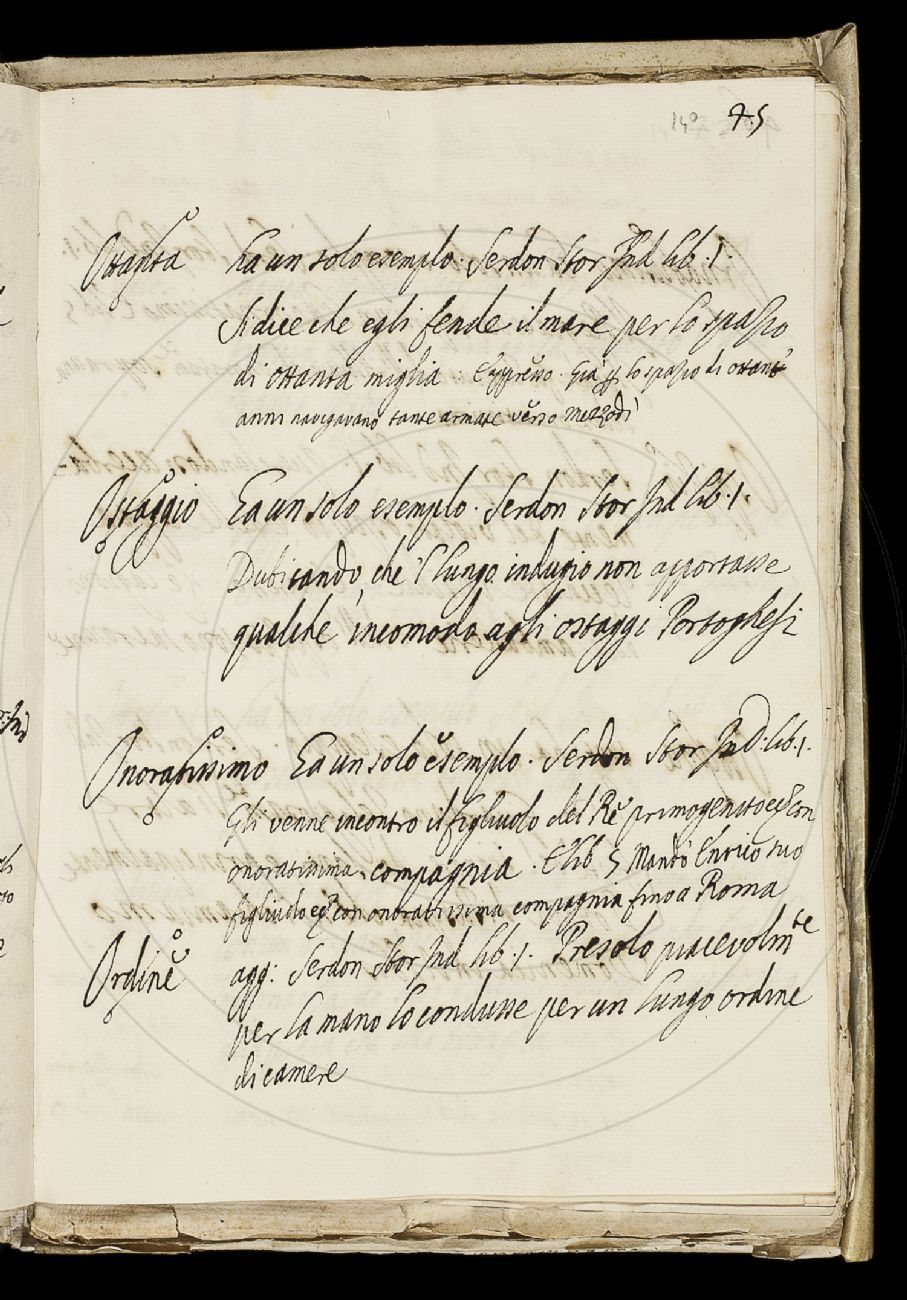 140 75
Ottanta Ha un solo esempio. Serdon Stor Ind lib. 1.
Si dice che egli fende il mare per lo spazio
di ottanta miglia. E appresso. Già p lo spazio di ottant'
anni navigavano tante armate verso mezzodì
Ostaggio Ha un solo esempio. Serdon Stor Ind lib. 1.
Dubitando, che 'l lungo indugio non apportasse
qualche incomodo agli ostaggi Portoghesi
Onoratissimo Ha un solo esempio. Serdon Stor Ind. lib. 1.
Gli venne incontro il figliuolo del Re primogenito con
onoratissima compagnia. E lib 5 Mandò Enrico suo
figliuolo con onoratissima compagnia fino a Roma
Ordine agg: Serdon Stor Ind lib. 1. Presolo piacevolmte
per la mano lo condusse per un lungo ordine
di camere